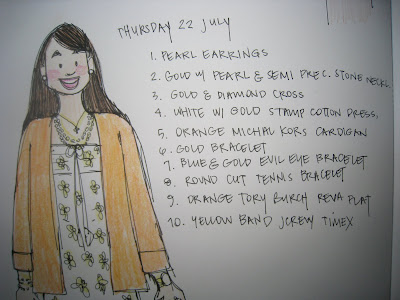 THURSDAY 22 JULY
1. PEARL EARRINGS
2. GOLD W/ PEARL & SEMI PREC. STONE NECKL.
3. GOLD & DIAMOND CROSS
4. WHITE W/ GOLD STAMP COTTON DRESS.
5. ORANGE MICHAL KORS CARDIGAN
6. GOLD BRACELET
7. BLUE & GOLD EVIL EYE BRACELET
8. ROUND CUT TENNIS BRACELET
9. ORANGE TORY BURCH REVA FLAT
10. YELLOW BAND JCREW TIMEX